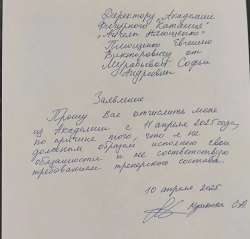 Директору „Академии
Фигурного Катания
„Ангелы Плющенко"
Плющенко Евгению
Викторовичу от
Муравьевой Софьи
Андреевны
Заявление
Прошу Вас отчислить меня
из Академии с 11 апреля 2025 года,
по причине того, что я не
должным образом исполняю свои
обязанности и не соответствую
требованиям тренерского состава.
10 апреля 2025